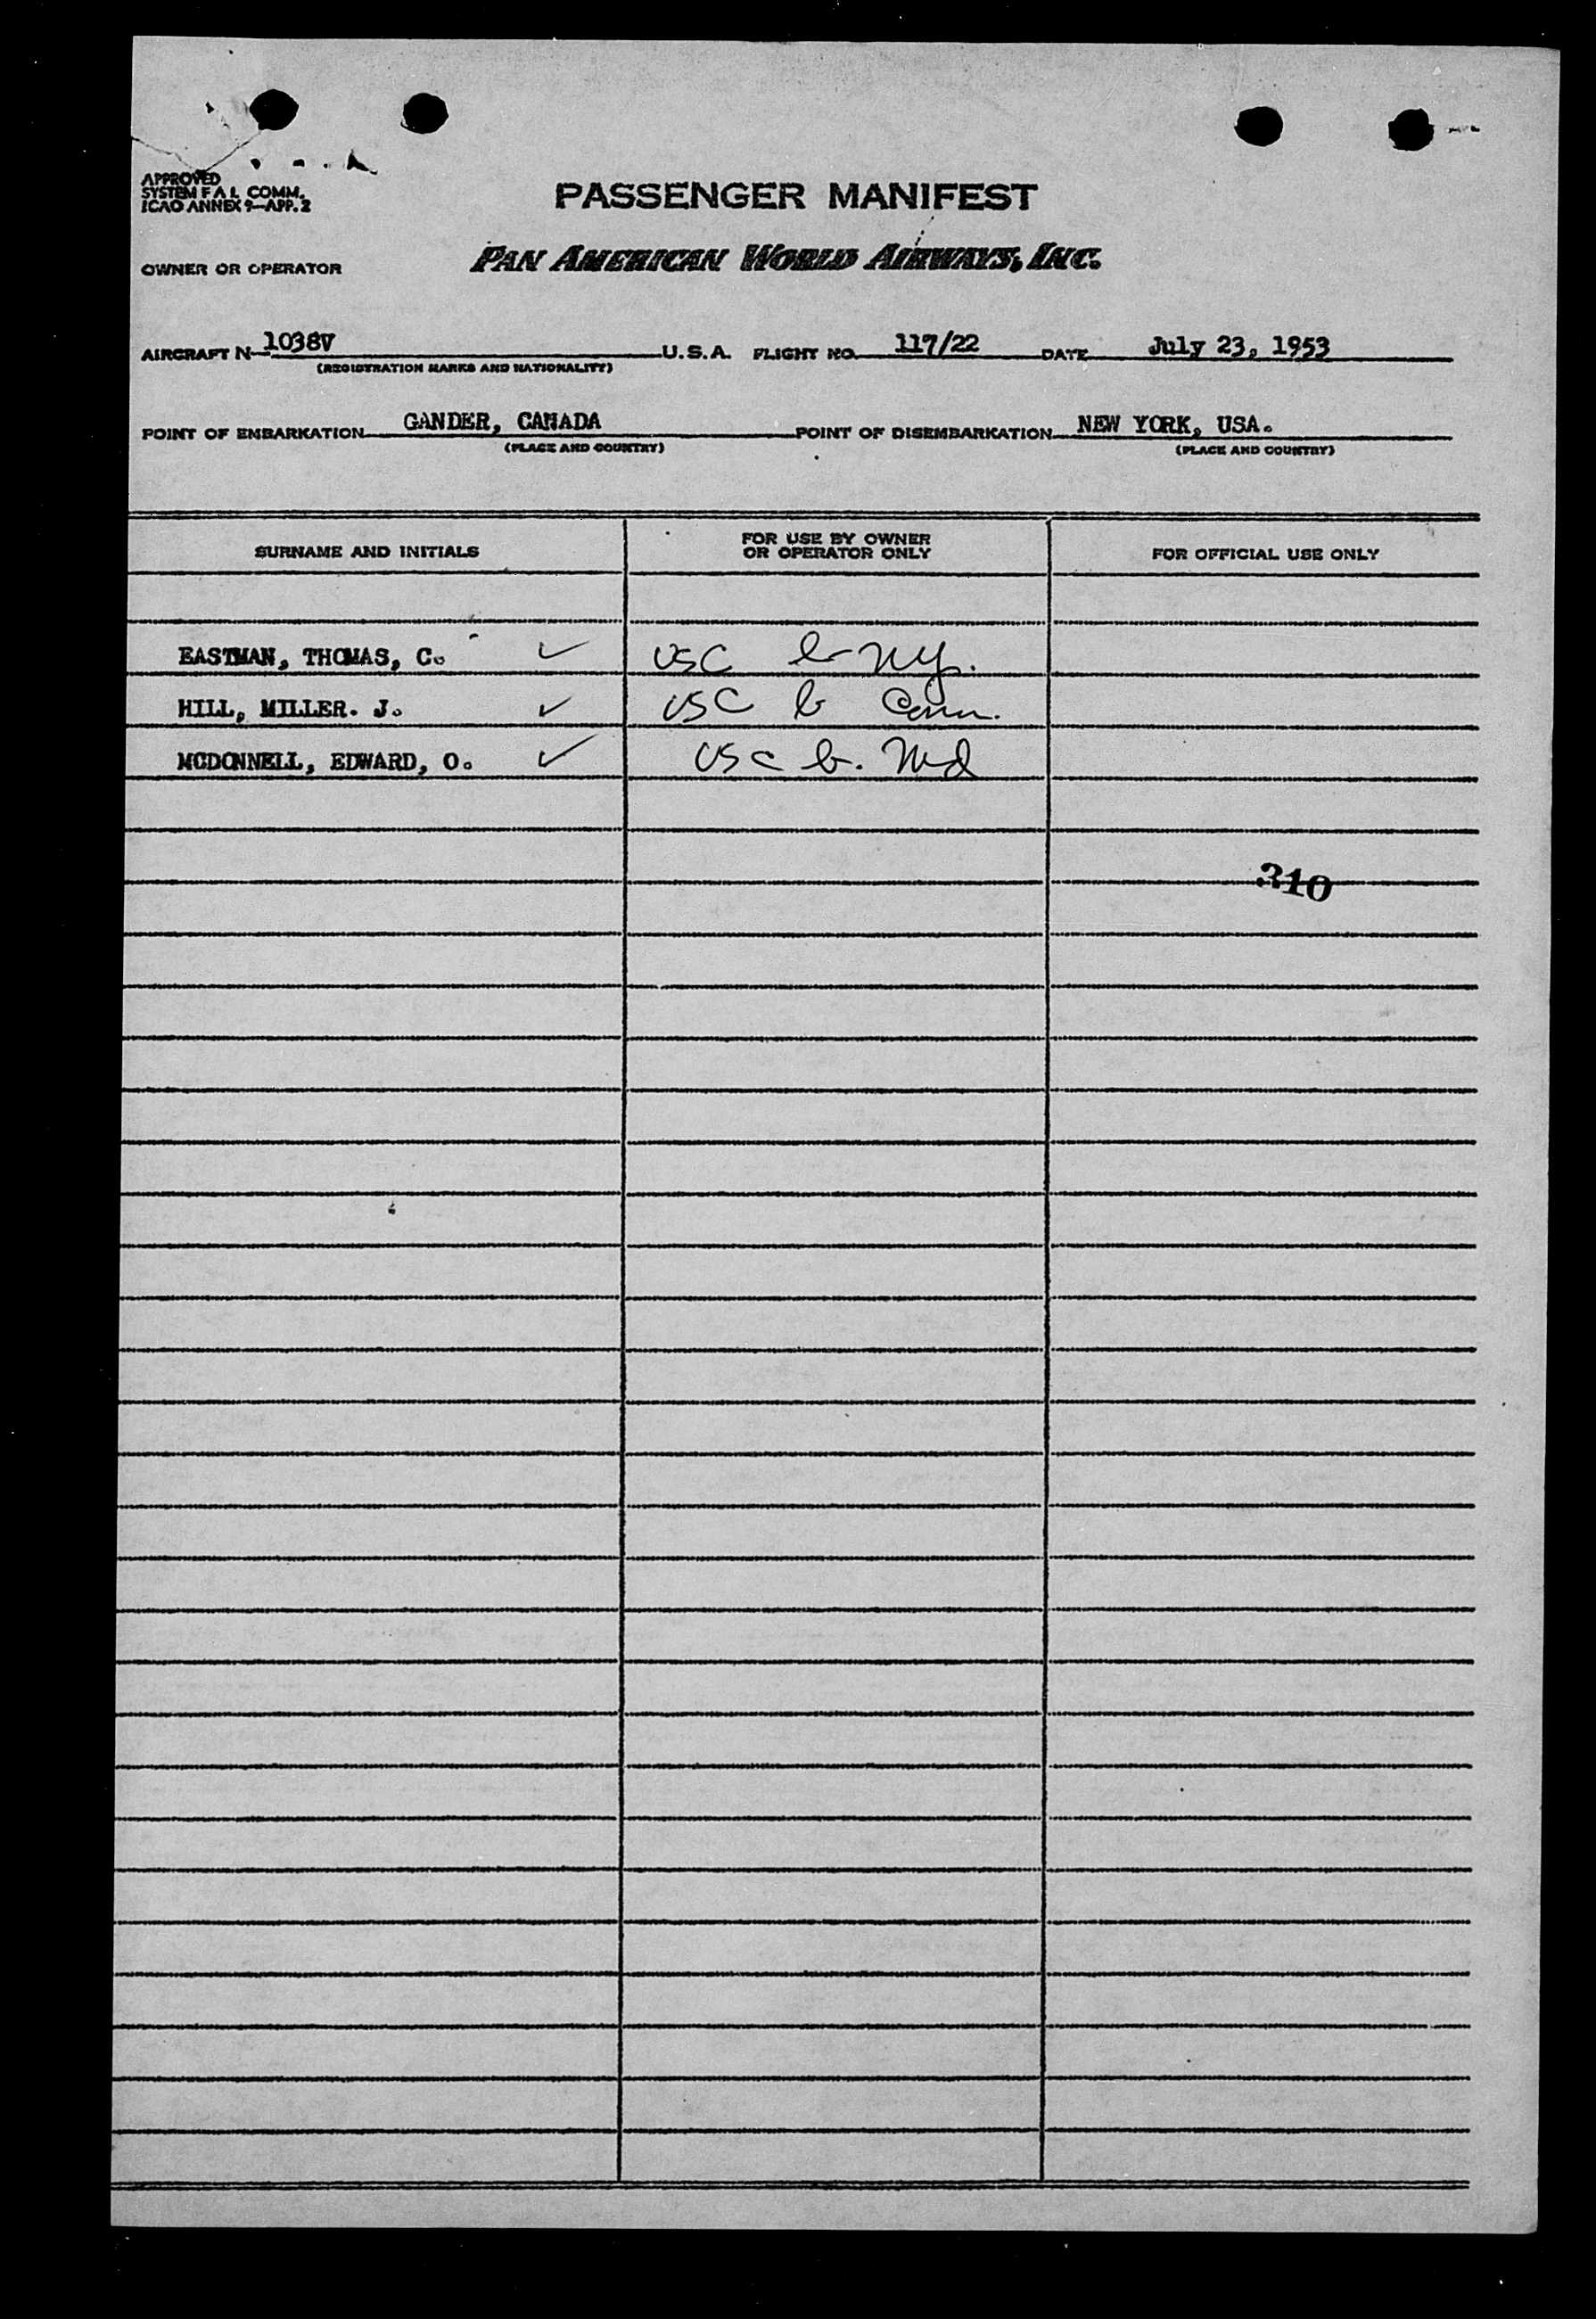 APPROVED
SYSTEM F A L COMM.
ICAO ANNEX 9—APP. 2
PASSENGER MANIFEST
OWNER OR OPERATOR PAN AMERICAN WORLD AIRWAYS, INC.
AIRCRAFT N- 1038V U.S.A. FLIGHT NO. 117/22 DATE July 23, 1953
(REGISTRATION MARKS AND NATIONALITY)
POINT OF EMBARKATION GANDER, CANADA POINT OF DISEMBARKATION NEW YORK, USA.
(PLACE AND COUNTRY) (PLACE AND COUNTRY)
SURNAME AND INITIALS FOR USE BY OWNER OR OPERATOR ONLY FOR OFFICIAL USE ONLY
EASTMAN, THOMAS, C. ✓ USC b- NY.
HILL, MILLER. J. ✓ USC b Conn.
MCDONNELL, EDWARD, O. ✓ USC b. Md
310